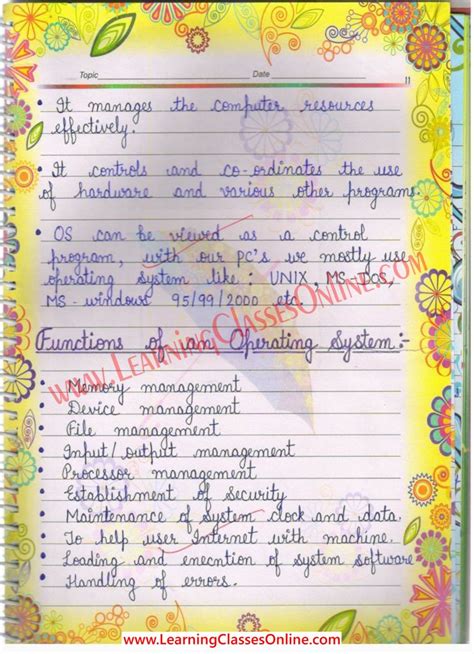 www.LearningClassesOnline.com
Topic Date
11
• It manages the computer resources
effectively.
• It controls and co-ordinates the use
of hardware and various other programs.
• OS can be viewed as a control
program, with our PC's we mostly use
operating system like : UNIX, MS-DOS,
MS-windows 95/99/2000 etc.
www.LearningClassesOnline.com
Functions of an Operating System:-
• Memory management
• Device management
• File management
• Input/output management
• Processor management
• Establishment of Security
• Maintenance of System clock and data.
• To help user Internet with machine.
• Loading and enecntion of system software
• Handling of errors.
www.LearningClassesOnline.com